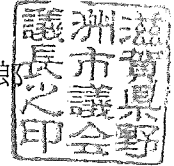 郎
滋賀県野
洲市議会
議長之印